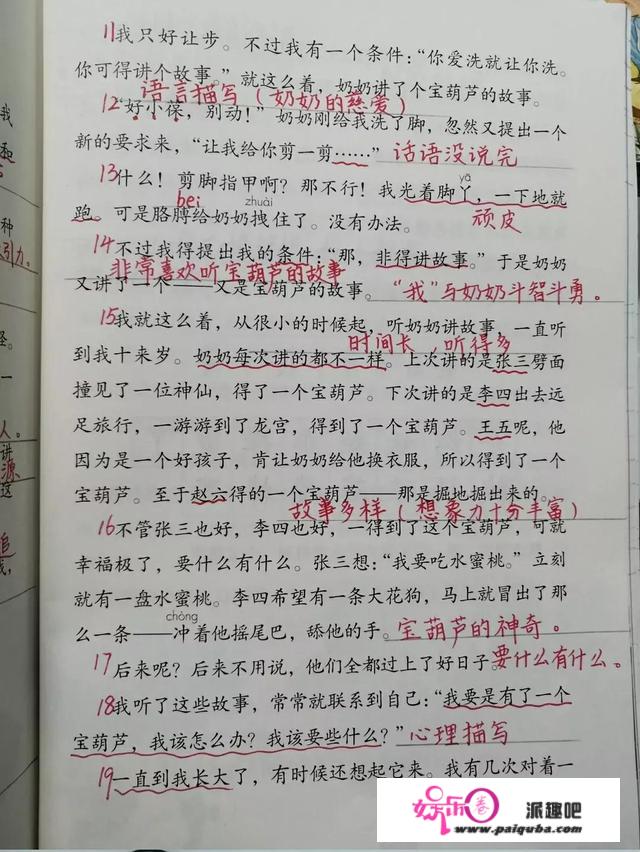 11我只好让步。不过我有一个条件：“你爱洗就让你洗。
你可得讲个故事。”就这么着，奶奶讲了个宝葫芦的故事。
语言描写（奶奶的慈爱）
12“好小葆，别动！”奶奶刚给我洗了脚，忽然又提出一个
新的要求来，“让我给你剪一剪……”
话语没说完
yā
13什么！剪脚指甲啊？那不行！我光着脚丫，一下地就
bei
zhuài
跑。可是胳膊给奶奶拽住了。没有办法。
顽皮
14不过我得提出我的条件：“那，非得讲故事。”于是奶奶
非常喜欢听宝葫芦的故事
又讲了一个——又是宝葫芦的故事。
“我”与奶奶斗智斗勇。
15我就这么着，从很小的时候起，听奶奶讲故事，一直听
时间长，听得多
到我十来岁。奶奶每次讲的都不一样。上次讲的是张三劈面
撞见了一位神仙，得了一个宝葫芦。下次讲的是李四出去远
足旅行，一游游到了龙宫，得到了一个宝葫芦。王五呢，他
因为是一个好孩子，肯让奶奶给他换衣服，所以得到了一个
宝葫芦。至于赵六得的一个宝葫芦——那是掘地掘出来的。
故事多样（想象力十分丰富）
16不管张三也好，李四也好，一得到了这个宝葫芦，可就
幸福极了，要什么有什么。张三想：“我要吃水蜜桃。”立刻
就有一盘水蜜桃。李四希望有一条大花狗，马上就冒出了那
chòng
么一条——冲着他摇尾巴，舔他的手。
宝葫芦的神奇。
17后来呢？后来不用说，他们全都过上了好日子。
要什么有什么。
18我听了这些故事，常常就联系到自己：“我要是有了一个
宝葫芦，我该怎么办？我该要些什么？”
心理描写
19一直到我长大了，有时候还想起它来。我有几次对着一
我
种
引力。
怪。
一
人。
讲
源
这
追
娱乐圈
派趣吧
www.paiquba.com